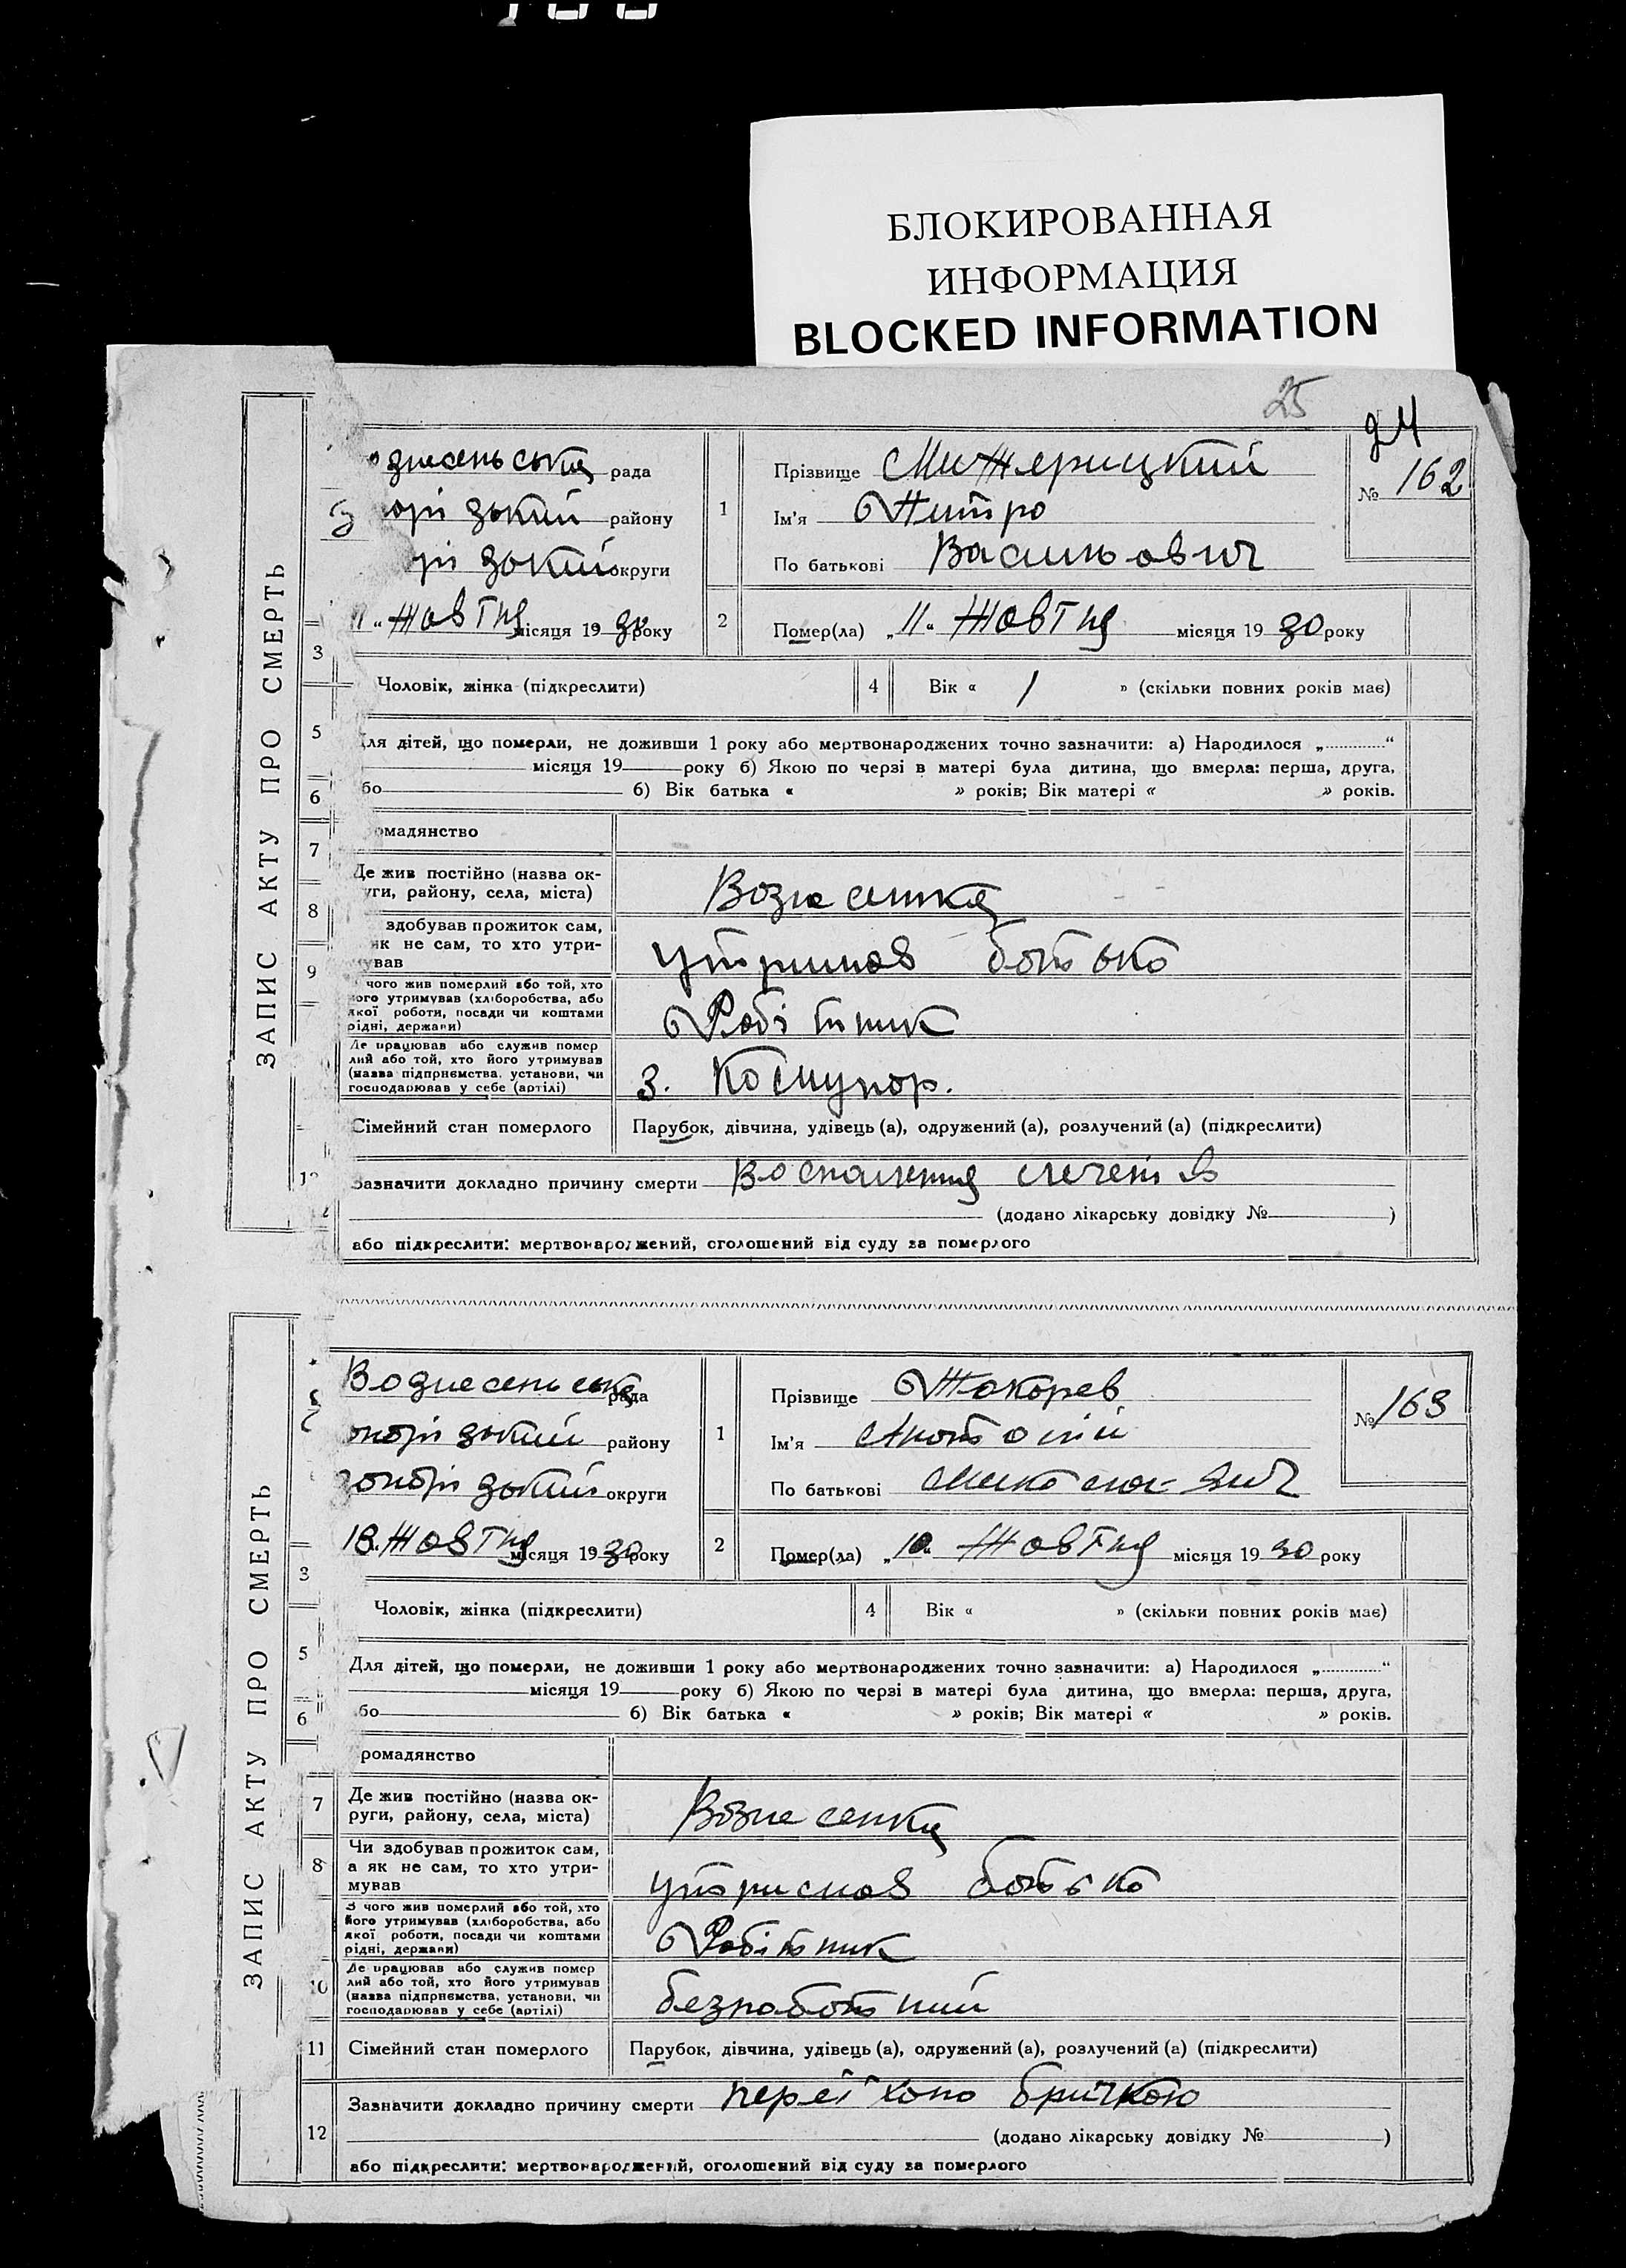 БЛОКИРОВАННАЯ
ИНФОРМАЦИЯ
BLOCKED INFORMATION
25
24
ЗАПИС АКТУ ПРО СМЕРТЬ
ознесенська рада
орізький району
різький округи
11 " Жовтня місяця 19 30 року
1
Прізвище Мижерицкий
Ім'я Митро
По батькові Васильович
№ 162
2
Помер(ла) „ 11 " Жовтня місяця 19 30 року
3
Чоловік, жінка (підкреслити)
4
Вік « 1 » (скільки повних років має)
5
Для дітей, що померли, не доживши 1 року або мертвонароджених точно зазначити: а) Народилося „............“
місяця 19 року б) Якою по черзі в матері була дитина, що вмерла: перша, друга,
бо б) Вік батька « » років; Вік матері « » років.
6
омадянство
7
Де жив постійно (назва ок-
уги, району, села, міста)
Вознесенка
8
здобував прожиток сам,
як не сам, то хто утри-
ував
утримав батько
9
чого жив померлий або той, хто
його утримував (хліборобства, або
якої роботи, посади чи коштами
рідні, держави)
Робітник
Де працював або служив помер
лий або той, хто його утримував
(назва підприємства, установи, чи
господарював у себе (артілі)
З. Комунар.
Сімейний стан померлого
Парубок, дівчина, удівець (а), одружений (а), розлучений (а) (підкреслити)
Зазначити докладно причину смерти Воспалення
(додано лікарську довідку № )
або підкреслити: мертвонароджений, оголошений від суду за померлого
ЗАПИС АКТУ ПРО СМЕРТЬ
Вознесенська рада
опорізький району
запорізький округи
13 " Жовтня місяця 19 30 року
1
Прізвище Токорев
Ім'я Анатолій
По батькові Миколаєвич
№ 163
2
Помер(ла) „ 10 " Жовтня місяця 19 30 року
3
Чоловік, жінка (підкреслити)
4
Вік « » (скільки повних років має)
5
Для дітей, що померли, не доживши 1 року або мертвонароджених точно зазначити: а) Народилося „............“
місяця 19 року б) Якою по черзі в матері була дитина, що вмерла: перша, друга,
бо б) Вік батька « » років; Вік матері « » років.
6
ромадянство
7
Де жив постійно (назва ок-
руги, району, села, міста)
Вознесенка
8
Чи здобував прожиток сам,
а як не сам, то хто утри-
мував
утримав батько
З чого жив померлий або той, хто
його утримував (хліборобства, або
якої роботи, посади чи коштами
рідні, держави)
Робітник
10
Де працював або служив помер
лий або той, хто його утримував
(назва підприємства, установи, чи
господарював у себе (артілі)
безработний
11
Сімейний стан померлого
Парубок, дівчина, удівець (а), одружений (а), розлучений (а) (підкреслити)
12
Зазначити докладно причину смерти переїхано бричкою
(додано лікарську довідку № )
або підкреслити: мертвонароджений, оголошений від суду за померлого